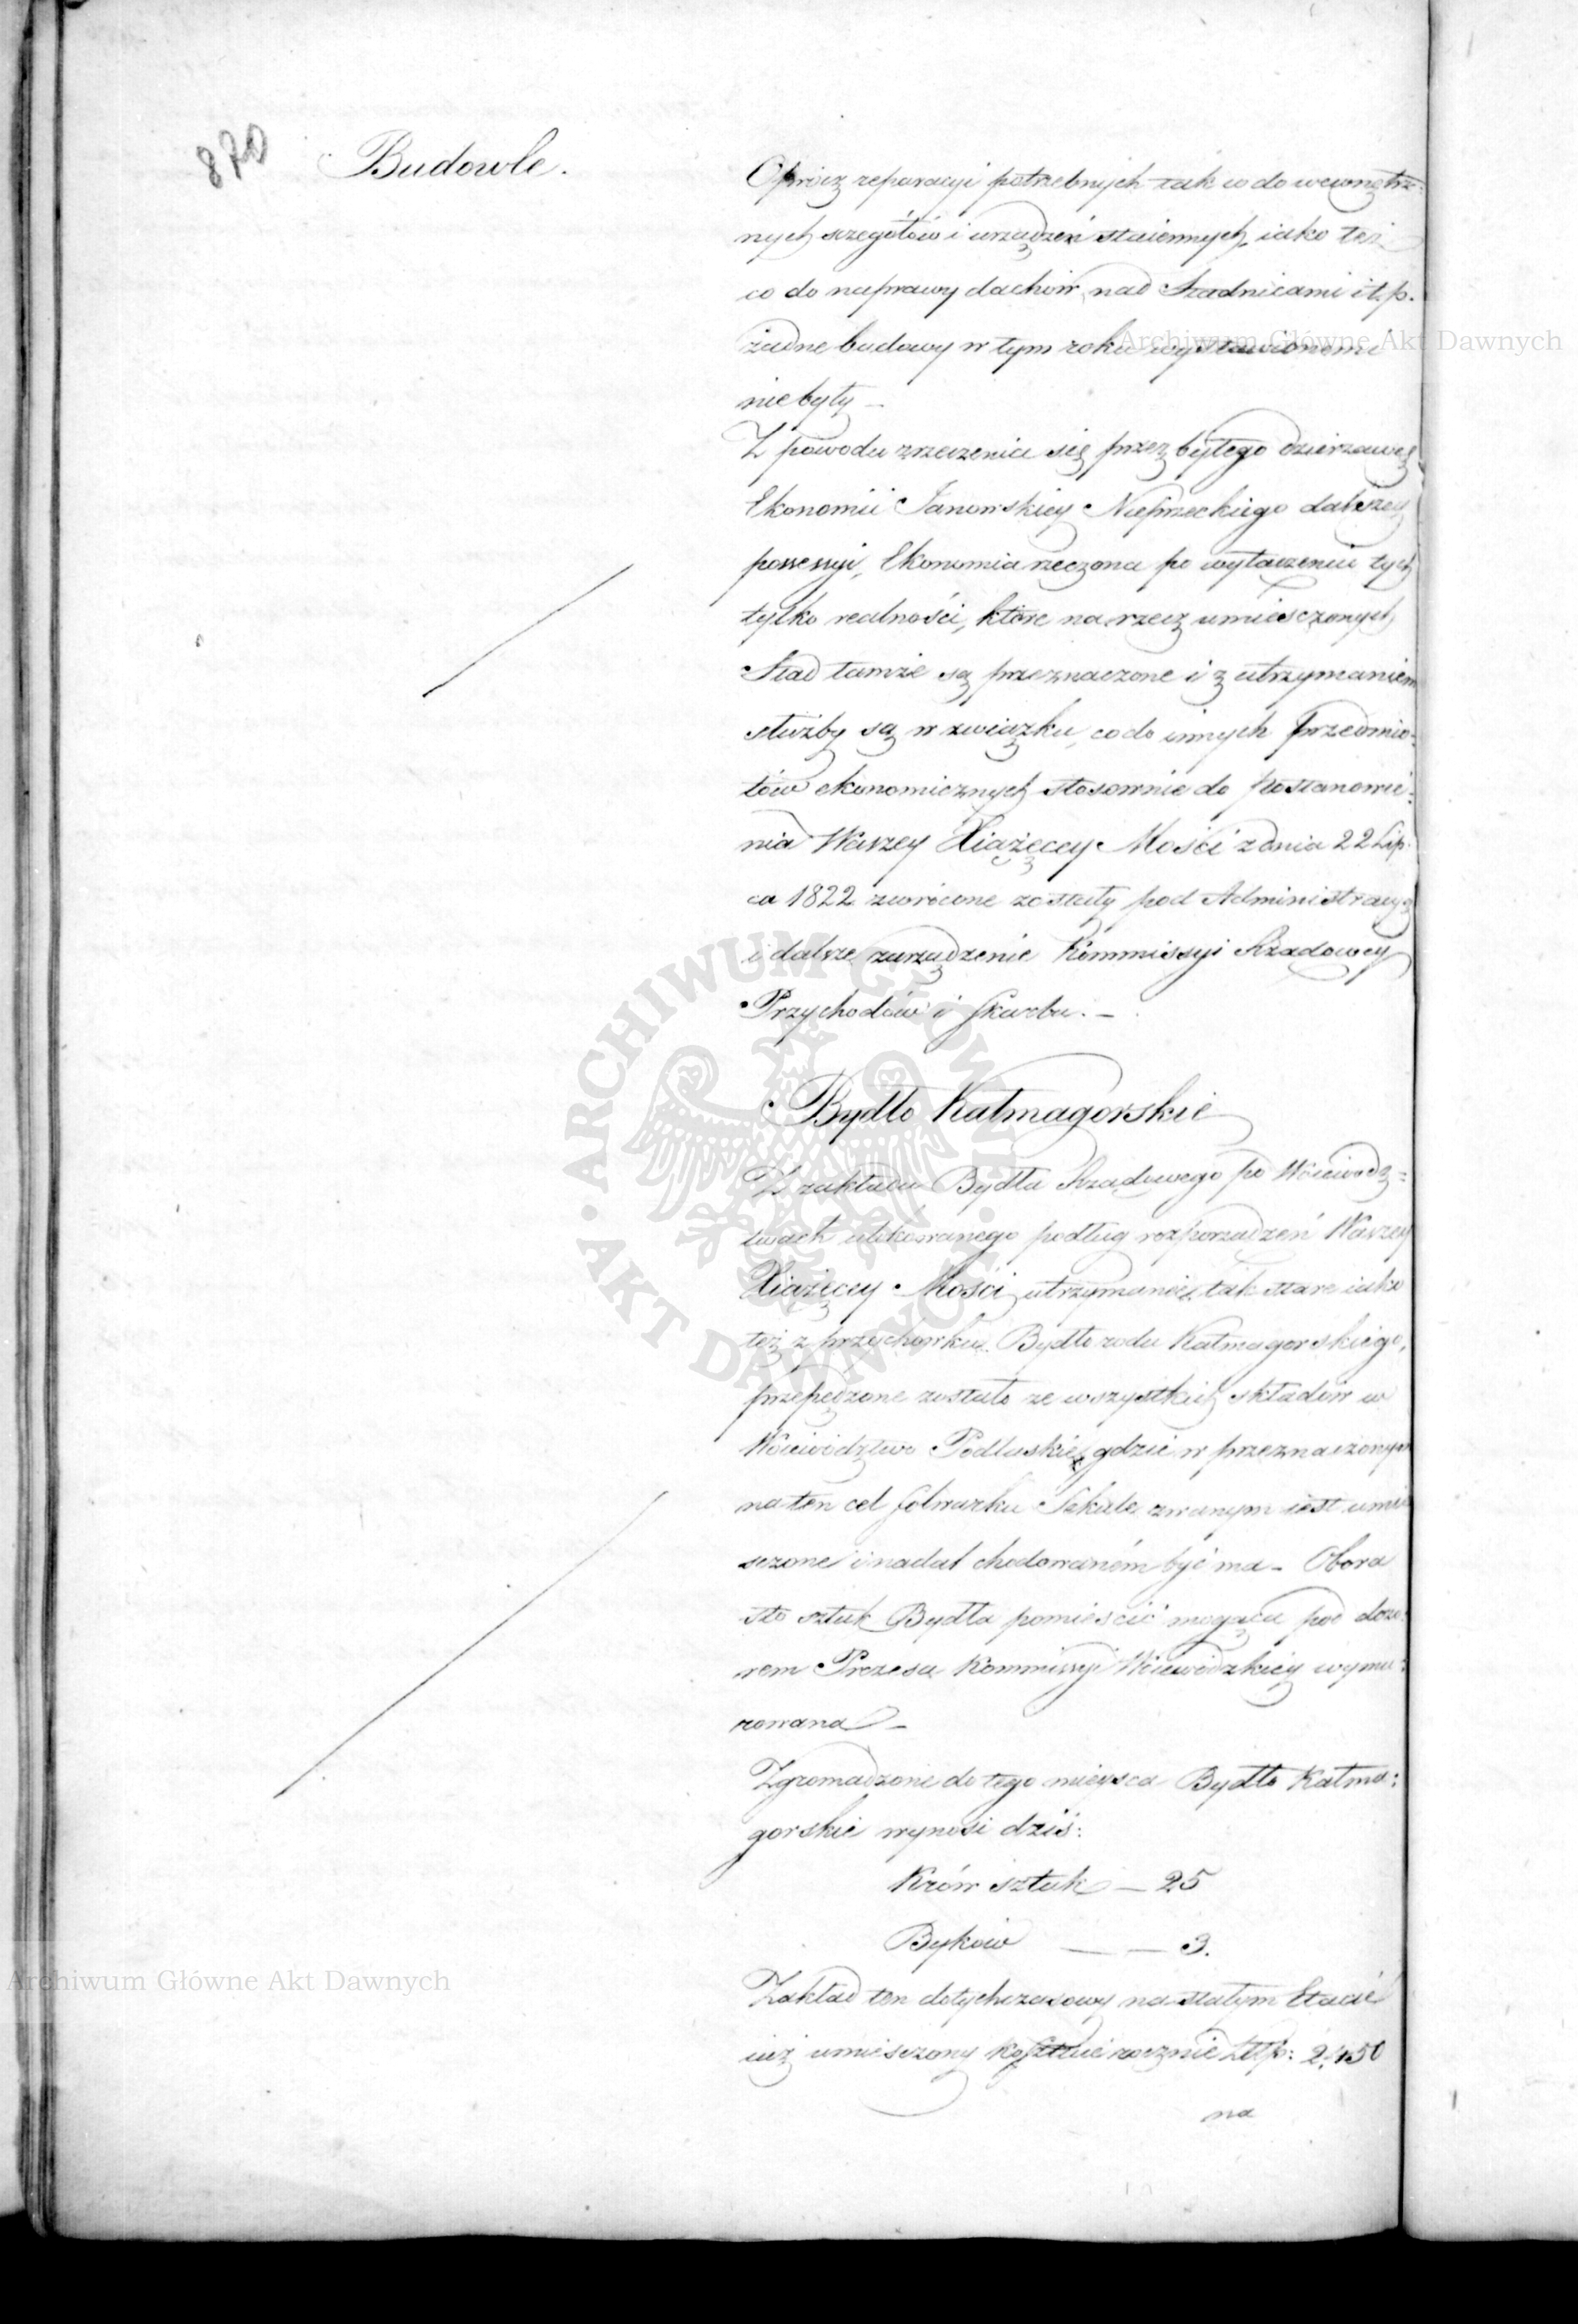 870
Budowle.
Oprócz reparacyi potrzebnych tak co do wewnętrz:
nych szczegółów i urządzeń staiennych, iako też
co do naprawy dachów, nad Stadnicami i t. p.
żadne budowy w tym roku wystawionemi
niebyły –
Z powodu zrzeczenia się przez byłego dzierzawcę
Ekonomii Janowskiey Nieprzeckiego dalszey
possessyi, Ekonomia rzeczona po wyłączeniu tych
tylko realności, które na rzecz umiesczonych
Stad tamże są przeznaczone i z utrzymaniem
służby są w związku, co do innych przedmio:
tów ekonomicznych stosownie do postanowie:
nia Waszey Xiążęcey Mości z dnia 22 Lip:
ca 1822 zwrócone zostały pod Administracyą
i dalsze zarządzenie Kommissyi Rządowey
Przychodów i Skarbu. –
Bydło Kałmagorskie
Z zakładu Bydła Rządowego po Woiewódz=
twach ulokowanego podług rozporządzeń Waszey
Xiążęcey Mości utrzymanie, tak stare iako
też z przychowku Bydło rodu Kałmagorskiego,
przepędzone zostało ze wszystkich składów w
Woiewództwo Podlaskie, gdzie w przeznaczonym
na ten cel folwarku zwanym iest umie
sczone i nadal chodowaném być ma – Obora
sto sztuk Bydła pomieścić mogąca pod dozo:
rem Prezesa Kommissyi Woiewódzkiéy wymu:
rowana –
Zgromadzone do tego mieysca Bydło Kałma:
gorskie wynosi dziś:
Krów sztuk – 25
Byków – – 3.
Zakład ten dotychczasowy na stałym Etacie
iuż umiesczony kosztuie rocznie Złłp: 2,450
na
Archiwum Główne Akt Dawnych
Archiwum Główne Akt Dawnych
ARCHIWUM GŁÓWNE • AKT DAWNYCH •